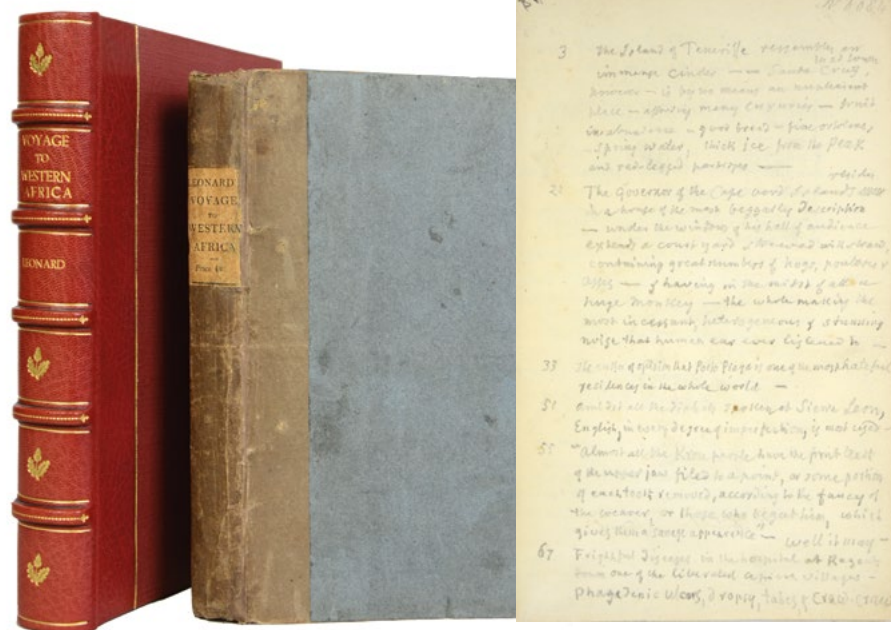 VOYAGE
TO
WESTERN
AFRICA
LEONARD
LEONARD'S
VOYAGE
TO
WESTERN
AFRICA
3 The Island of Teneriffe resembles an
immense cinder — Santa Cruz,
however — is by no means an
place — affording many luxuries — fruit
in abundance — good bread — fine
spring water, thick ice from the Peak
and red-legged partridges —
resides
21 The Governor of the Cape Verd Islands
in a house of the most beggarly description
— under the windows of his hall of audience
extends a court yard with straw,
containing great numbers of hogs, poultry &
asses — & having in the midst of all a
huge monkey — the whole making the
most incessant, heterogeneous & shrieking
noise that human ear ever listened to —
33 is one of the most hateful
residences in the whole world —
51 Amidst all the dialects spoken at Sierra Leon,
English, in every degree of imperfection, is most used —
55 "Almost all the Kroo people have the front teeth
of the upper jaw filed to a point, or some portion
of each tooth removed, according to the fancy of
the wearer, or those who begat him, which
gives them a savage appearance" — well it may —
67 Frightful diseases in the hospital at
town one of the liberated African villages —
Phagedenic Ulcers, dropsy, tabes & Craw-Craw